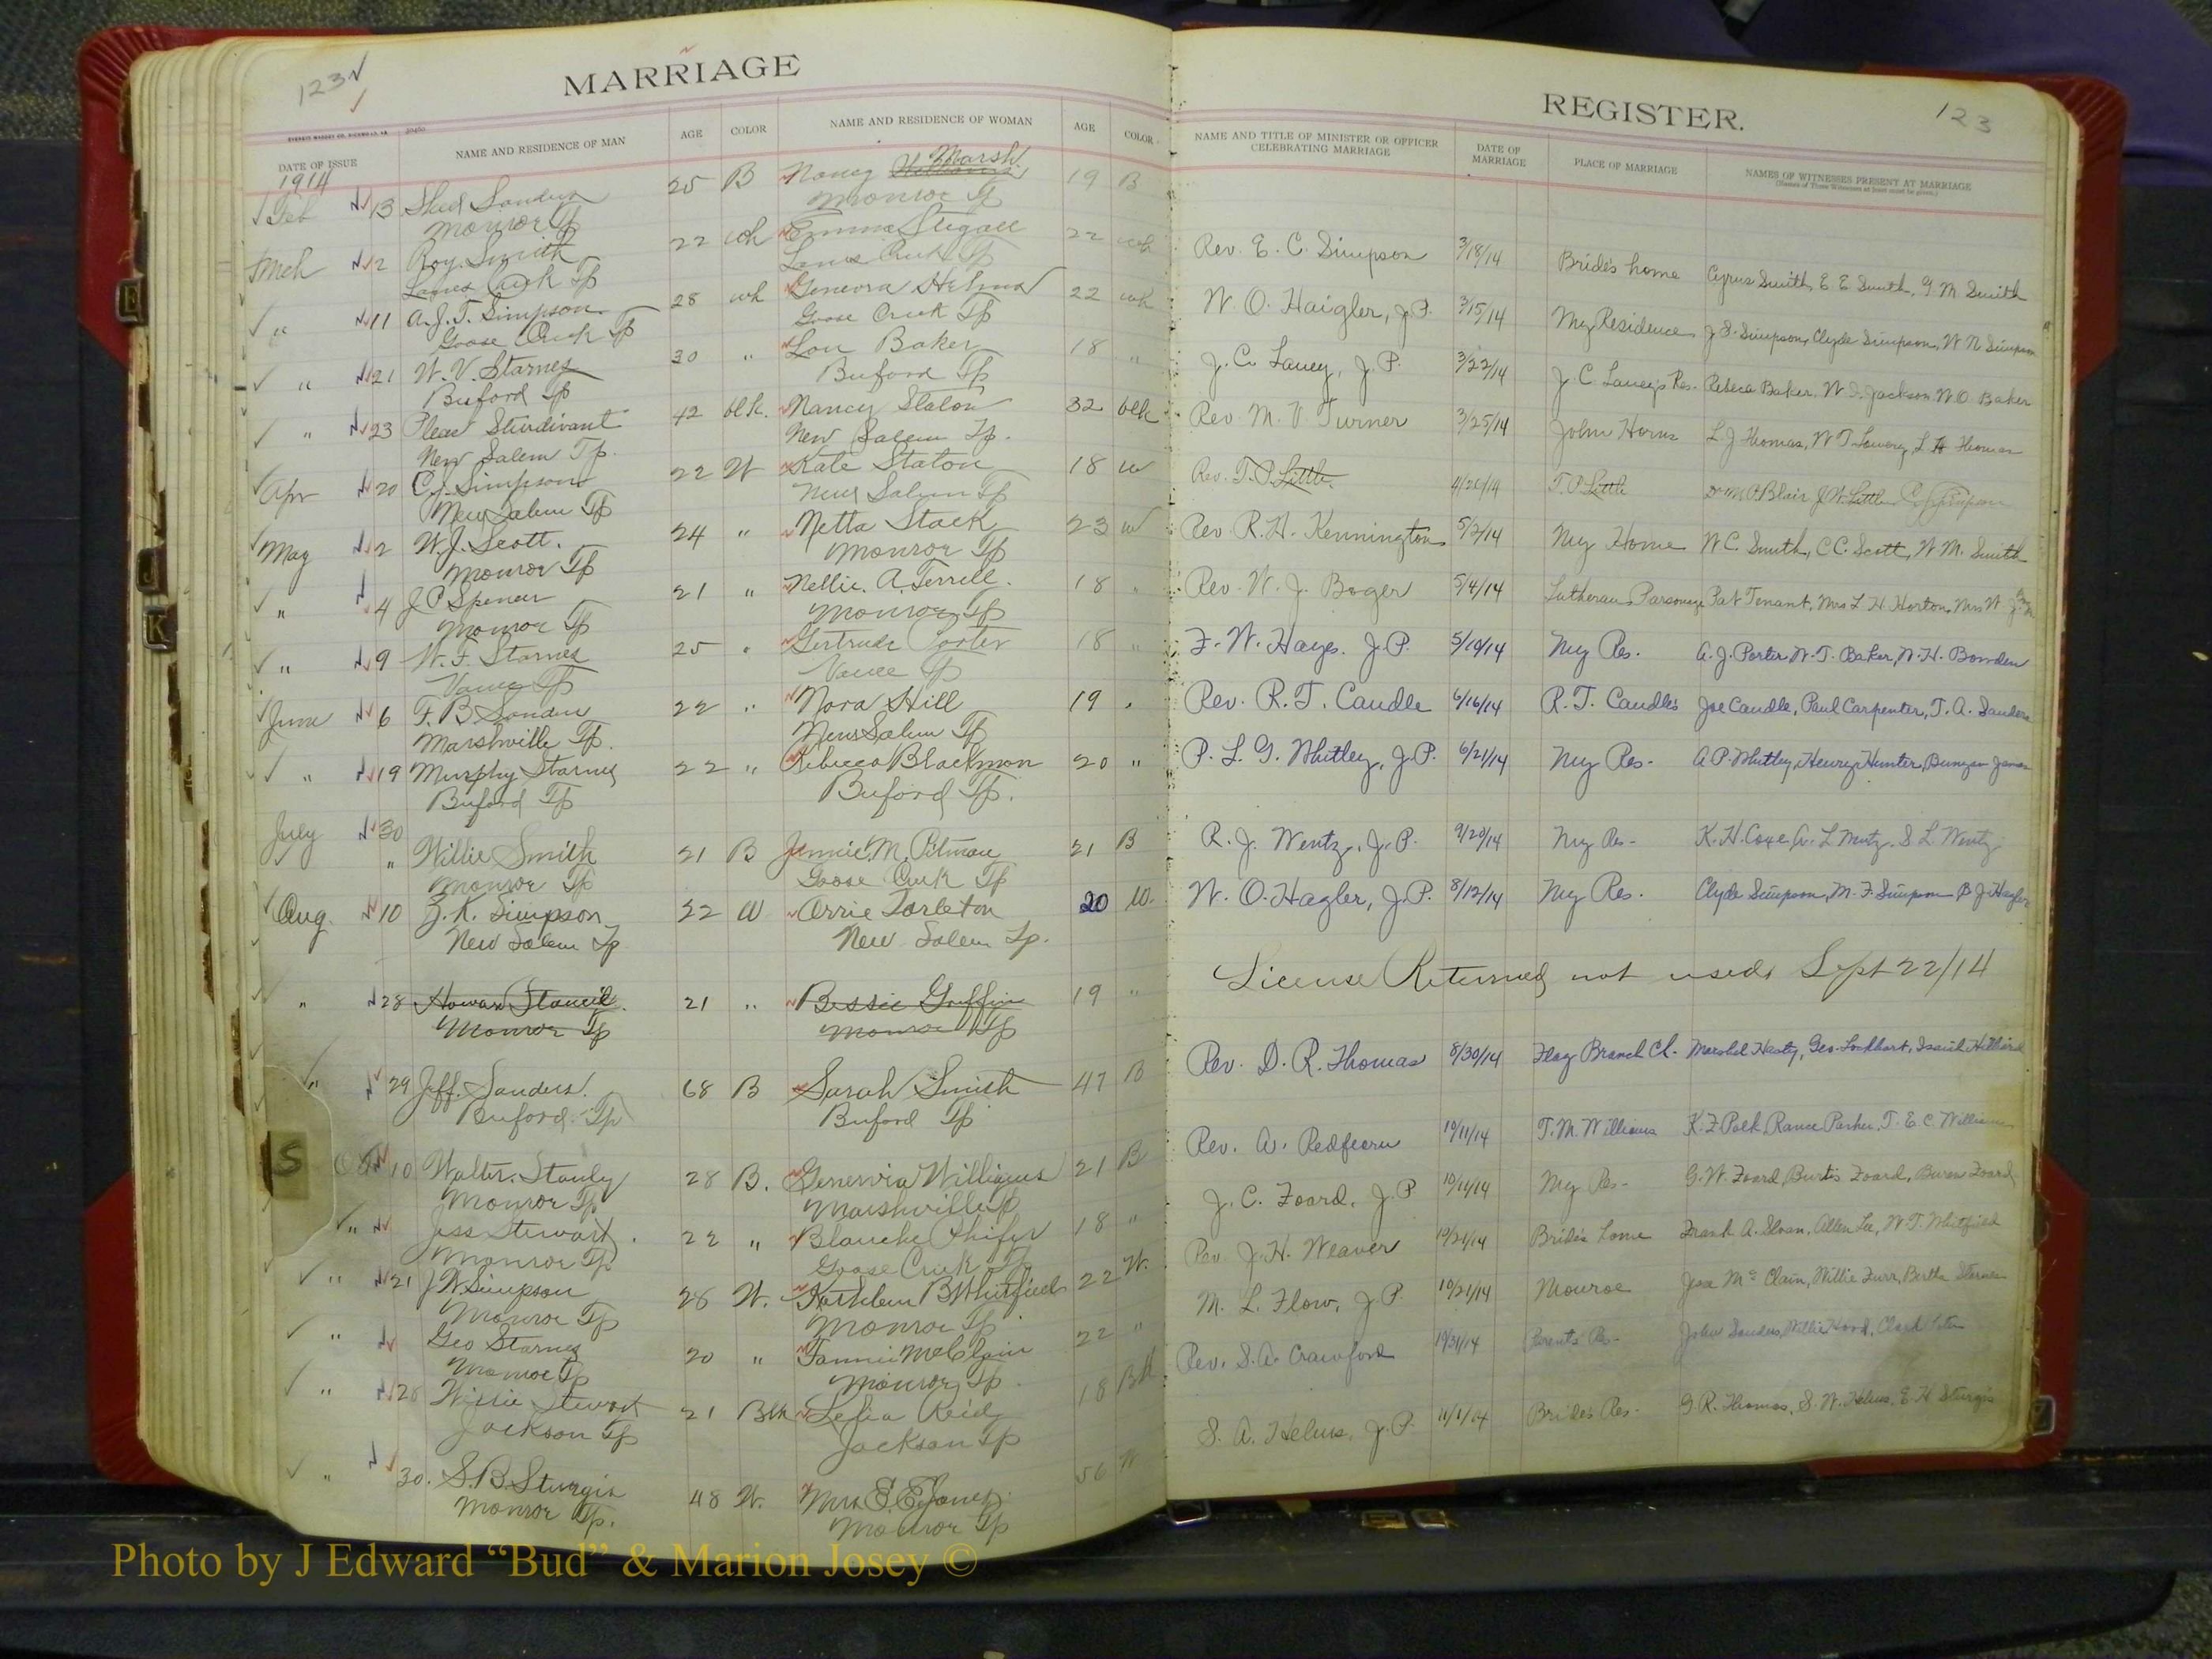 123
MARRIAGE
DATE OF ISSUE
NAME AND RESIDENCE OF MAN
AGE
COLOR
NAME AND RESIDENCE OF WOMAN
AGE
COLOR
1914
Feb 13 Sanders 25 B Nancy Marsh 19 B
Monroe Tp Monroe Tp
Mch 2 Roy Smith 22 wh Emma Stegall 22 wh
Lanes Creek Tp Lanes Creek Tp
" 11 A. J. T. Simpson 28 wh Genevra Helms 22 wh
Goose Creek Tp Goose Creek Tp
" 21 W. V. Starnes 30 " Lou Baker 18 "
Buford Tp Buford Tp
" 23 Pleas Sturdivant 42 blk. Nancy Staton 32 blk
New Salem Tp. New Salem Tp.
Apr 20 C. J. Simpson 22 W Kate Staton 18 w
New Salem Tp New Salem Tp
May 2 W. J. Scott. 24 " Netta Stack 23 w
Monroe Tp Monroe Tp
" 4 J P Spencer 21 " Nellie. A. Terrell. 18 "
Monroe Tp Monroe Tp
" 9 W. F. Starnes 25 " Gertrude Porter 18 "
Vance Tp Vance Tp
June 6 F. B. Sanders 22 " Nora Hill 19 "
Marshville Tp. New Salem Tp
" 19 Murphy Starnes 22 " Rebecca Blackmon 20 "
Buford Tp Buford Tp.
July 30
" Willie Smith 21 B Jannie M. Pitman 21 B
Monroe Tp Goose Creek Tp
Aug. 10 Z. K. Simpson 22 W Orrie Tarleton 20 W.
New Salem Tp. New Salem Tp.
" 28 Howard Stancil. 21 " Bessie Griffin 19 "
Monroe Tp Monroe Tp
" 29 Jeff. Sanders. 68 B Sarah Smith 47 B
Buford Tp Buford Tp
S
Oct 10 Walter. Stanly 28 B. Genervia Williams 21 B
Monroe Tp Marshville Tp
" Jess Stewart. 22 " Blanche Phifer 18 "
Monroe Tp Goose Creek Tp
" 21 J W Simpson 28 W. Kathleen B Whitfield 22 W.
Monroe Tp Monroe Tp
" Geo Starnes 20 " Fannie McClain 22 "
Monroe Tp Monroe Tp.
" 28 Willie Stewart 21 Blk Lelia Reid 18 Blk
Jackson Tp Jackson Tp
" 30. S. B. Sturgis 48 W. Mrs E. E. Jones 50 W
Monroe Tp. Monroe Tp
REGISTER.
123
NAME AND TITLE OF MINISTER OR OFFICER
CELEBRATING MARRIAGE
DATE OF
MARRIAGE
PLACE OF MARRIAGE
NAMES OF WITNESSES PRESENT AT MARRIAGE
Rev. E. C. Simpson 3/18/14 Bride's home Cyrus Smith, E E Smith, G M Smith
W. O. Haigler, J. P. 3/15/14 My Residence J. S. Simpson, Clyde Simpson, W N Simpson
J. C. Laney, J. P. 3/22/14 J C Laney's Res. Rebeca Baker, W. J. Jackson, W. O Baker
Rev. M. V. Turner 3/25/14 John Horns L. J Thomas, W T Lowery, L H Thomas
Rev. T. P. Little. 4/20/14 T. P Little Dr M P. Blair J. W. Little C J Simpson
Rev R. H. Kennington 5/2/14 My Home W C. Smith, C C. Scott, W M. Smith
Rev. W. J. Boger 5/4/14 Lutheran Parsonage Pat Tenant, Mrs L. H. Horton, Mrs W J
F. W. Hayes. J. P. 5/10/14 My Res. A. J. Porter, W. T. Baker, W. H. Bowden
Rev. R. T. Caudle 6/16/14 R. T. Caudle's Joe Caudle, Paul Carpenter, T. A. Sanders
P. L. G. Whitley, J. P. 6/21/14 My Res- A. P. Whitley, Henry Hunter, Bunyan James
R. J. Wentz, J. P. 9/20/14 My Res- K. H. Coxe, L Wentz, S L Wentz
W. O. Hagler, J. P. 8/12/14 My Res. Clyde Simpson, M. F. Simpson B J. Hagler
License Returned not used Sept 22/14
Rev. D. R. Thomas 8/30/14 Flag Branch Ch. Marshel Hasty, Geo. Lockhart, Isaiah Hilliard
Rev. A. Redfearn 10/11/14 T. M. Williams K. Z Polk, Rance Parker, T. E. C. Williams
J. C. Foard, J. P 10/11/14 My Res- G. W. Foard, Burtis Foard, Buren Foard
Rev. J. H. Weaver 10/21/14 Brides home Frank A. Sloan, Allen Lee, W. T. Whitfield
M. L. Flow, J. P. 10/21/14 Monroe Jess McClain, Willie Furr, Bertha Starnes
Rev. S. A. Crawford 10/31/14 Parents Res- John Sanders, Willie Hood,
S. A. Helms, J. P. 11/1/14 Brides Res- G. R. Thomas, S. W. Helms, E. H Sturgis
Photo by J Edward “Bud” & Marion Josey ©